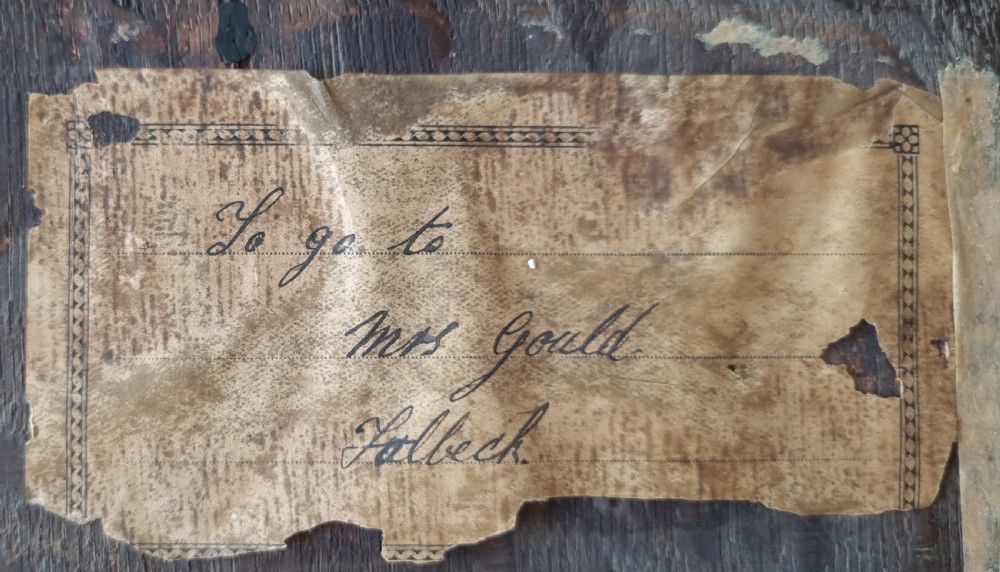 To go to
Mrs Gould
Holbeck.